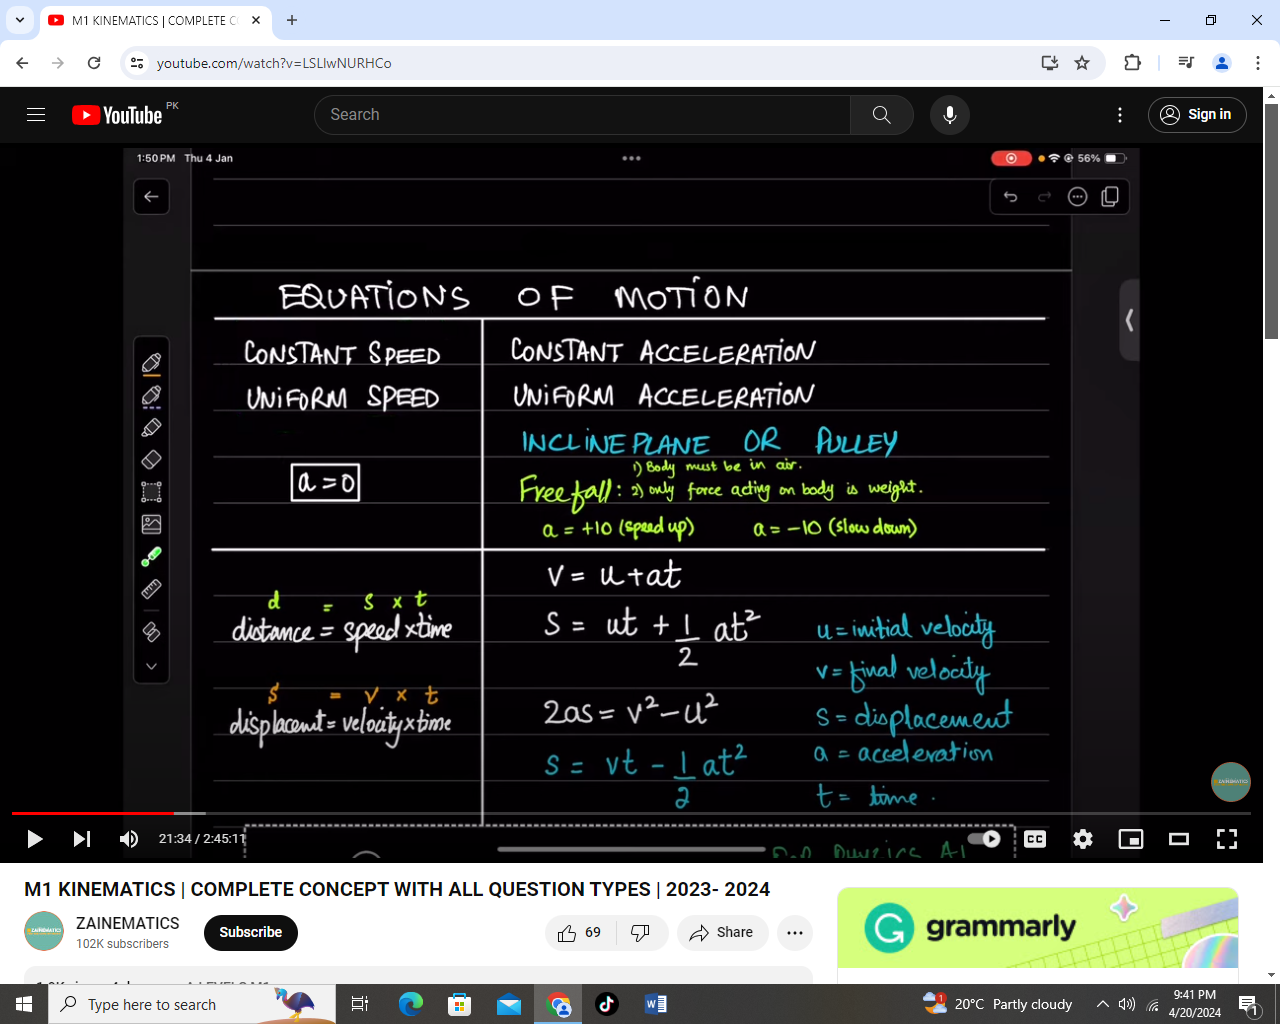 M1 KINEMATICS | COMPLETE C
youtube.com/watch?v=LSLlwNURHCo
YouTube PK
Search
Sign in
1:50 PM Thu 4 Jan
56%
EQUATIONS OF MOTION
CONSTANT SPEED
UNIFORM SPEED
a = 0
CONSTANT ACCELERATION
UNIFORM ACCELERATION
INCLINE PLANE OR PULLEY
1) Body must be in air.
Free fall: 2) only force acting on body is weight.
a = +10 (speed up) a = -10 (slow down)
d = s × t
distance = speed × time
s = v × t
displacemt = velocity × time
v = u + at
s = ut + 1/2 at²
2as = v² - u²
s = vt - 1/2 at²
u = initial velocity
v = final velocity
s = displacement
a = acceleration
t = time.
FOR PHYSICS A1
ZAINEMATICS
21:34 / 2:45:11
CC
M1 KINEMATICS | COMPLETE CONCEPT WITH ALL QUESTION TYPES | 2023- 2024
ZAINEMATICS
102K subscribers
Subscribe
69
Share
grammarly
Type here to search
20°C Partly cloudy
9:41 PM
4/20/2024
1
1